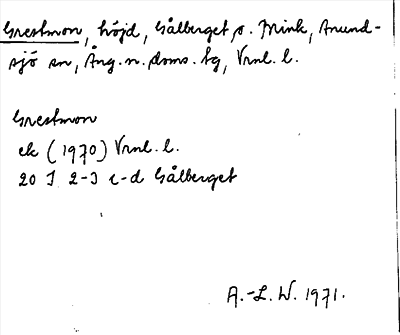 Grestmon, höjd, Gålberget s. Mink, Anund-
sjö sn, Ång. n. doms. tg, Vrnl. l.
Grestmon
ek (1970) Vrnl. l.
20 I 2-3 c-d Gålberget
A.-L. W. 1971.